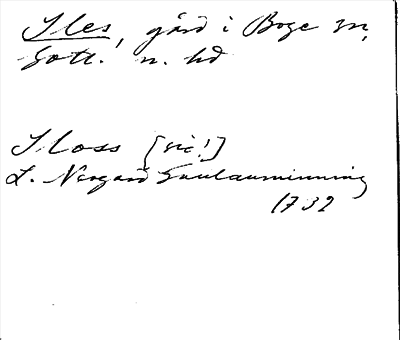 Iles, gård i Boge sn,
Gotl. n. hd
I Loss [sic!]
L. Neogard Gaulauminning
1732